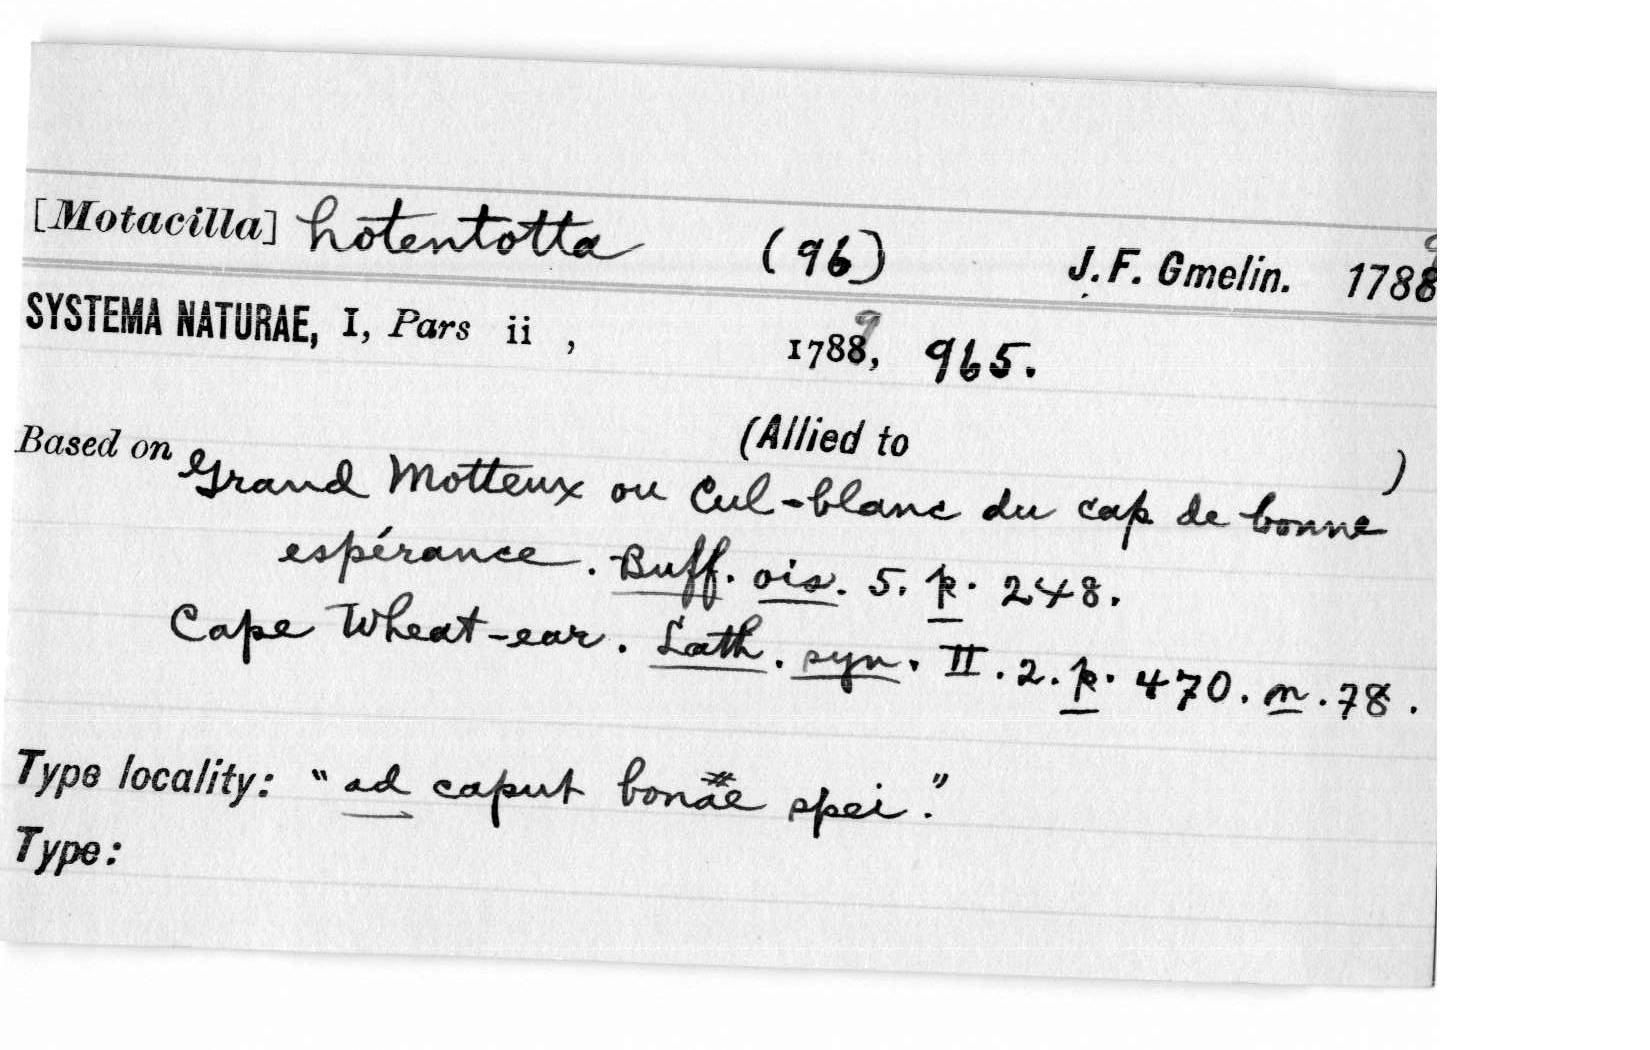 [Motacilla] hotentotta (96) J. F. Gmelin. 1788 9
SYSTEMA NATURAE, I, Pars ii , 1788, 9 965.
(Allied to )
Based on Grand Motteux ou Cul-blanc du cap de bonne
espérance. Buff. ois. 5. p. 248.
Cape Wheat-ear. Lath. syn. II. 2. p. 470. n. 78.
Type locality: "ad caput bonae spei."
Type: